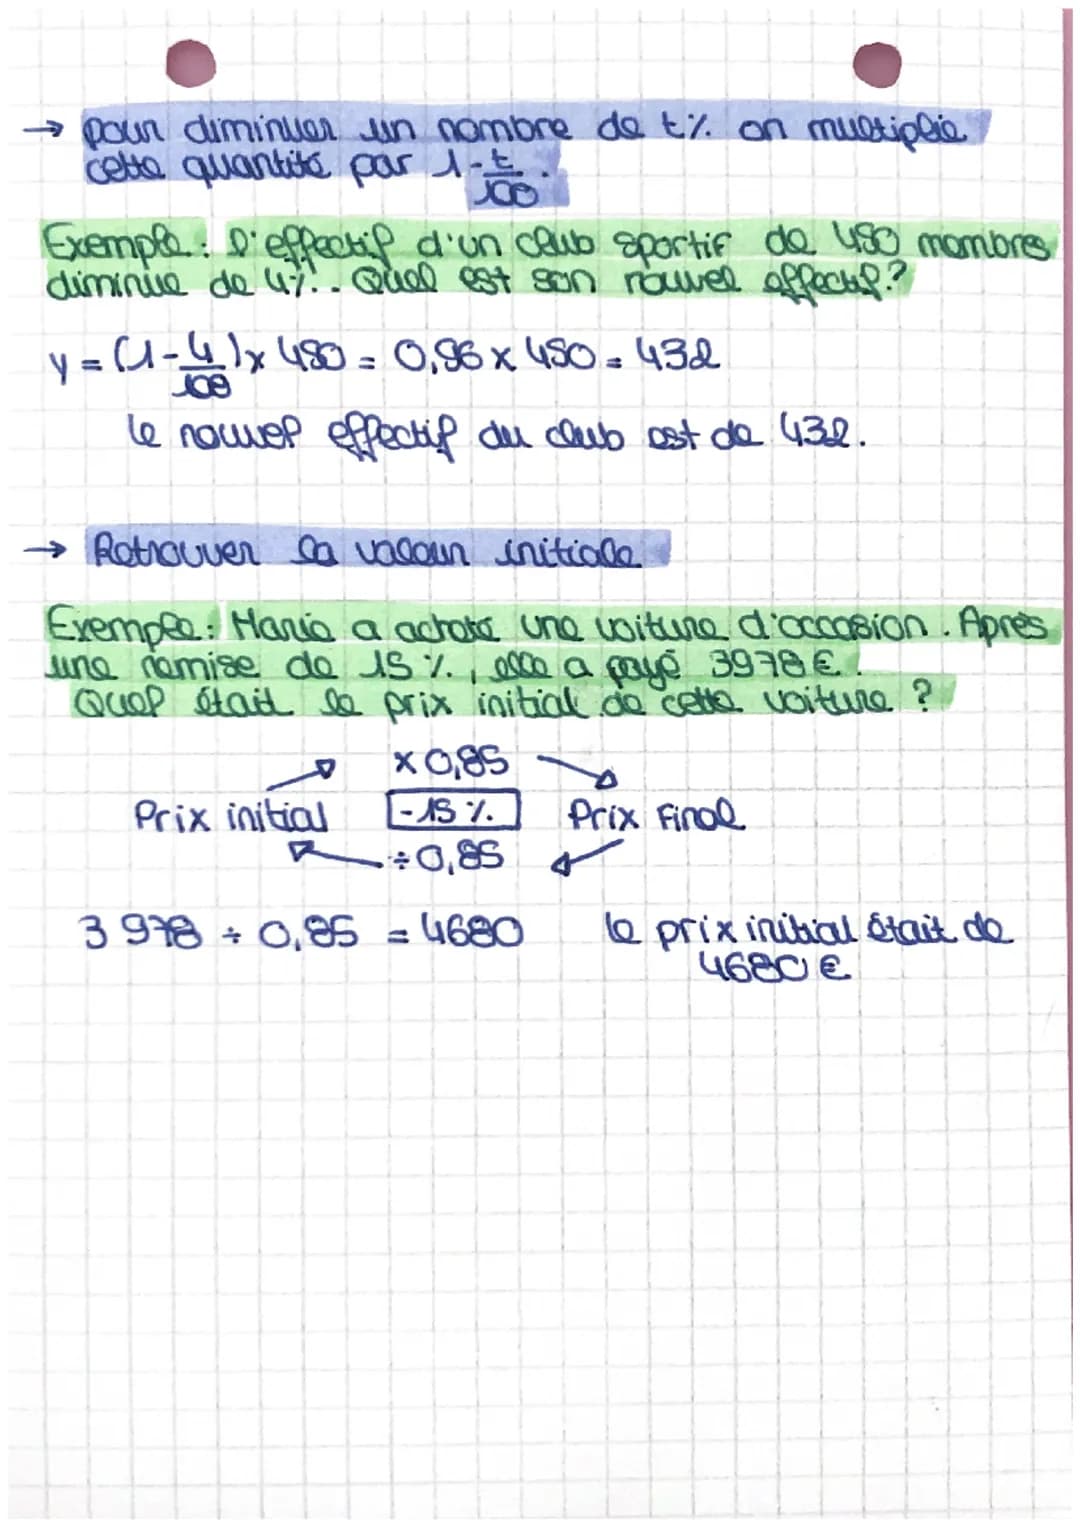 → pour diminuer un nombre de t% on multiplie
cette quantité par 1-t/100.
Exemple : l'effectif d'un club sportif de 450 membres
diminue de 4%. Quel est son nouvel effectif ?
y = (1-4/100) x 450 = 0,96 x 450 = 432
le nouvel effectif du club est de 432.
→ Retrouver la valeur initiale
Exemple : Maria a acheté une voiture d'occasion. Après
une remise de 15 %, elle a payé 3978 €.
Quel était le prix initial de cette voiture ?
x 0,85
Prix initial -15 % Prix Final
÷ 0,85
3 978 ÷ 0,85 = 4680 le prix initial était de
4680 €